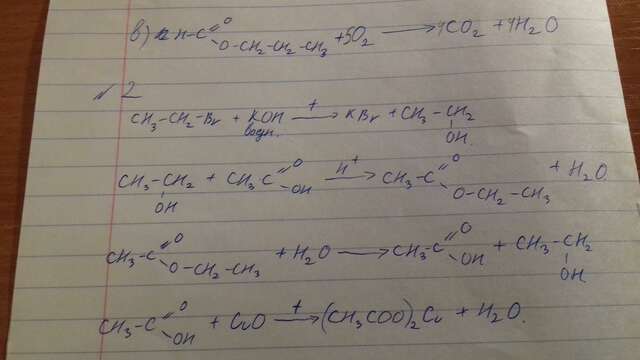 в) H-C(=O)-O-CH₂-CH₂-CH₃ + 5O₂ → 4CO₂ + 4H₂O
№2
CH₃-CH₂-Br + KOH водн. —t→ KBr + CH₃-CH₂-OH.
CH₃-CH₂-OH + CH₃-C(=O)-OH —H⁺→ CH₃-C(=O)-O-CH₂-CH₃ + H₂O.
CH₃-C(=O)-O-CH₂-CH₃ + H₂O → CH₃-C(=O)-OH + CH₃-CH₂-OH.
CH₃-C(=O)-OH + CuO —t→ (CH₃COO)₂Cu + H₂O.